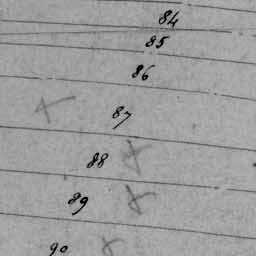 84
85
86
87
88
89
90